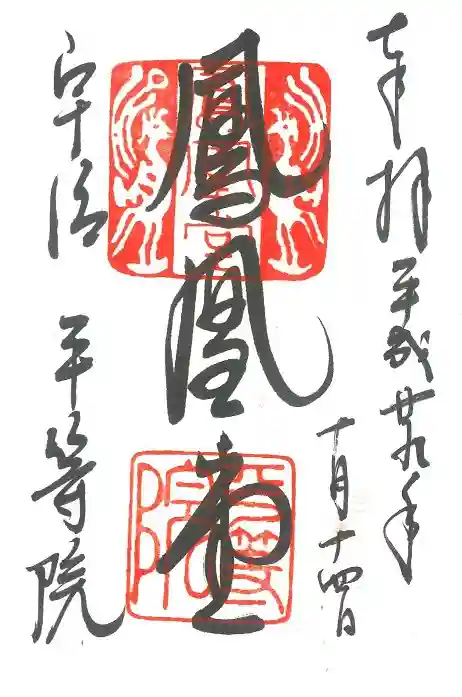 奉拝 平成廿九年
十月十四日
鳳凰堂
宇治 平等院
平等院